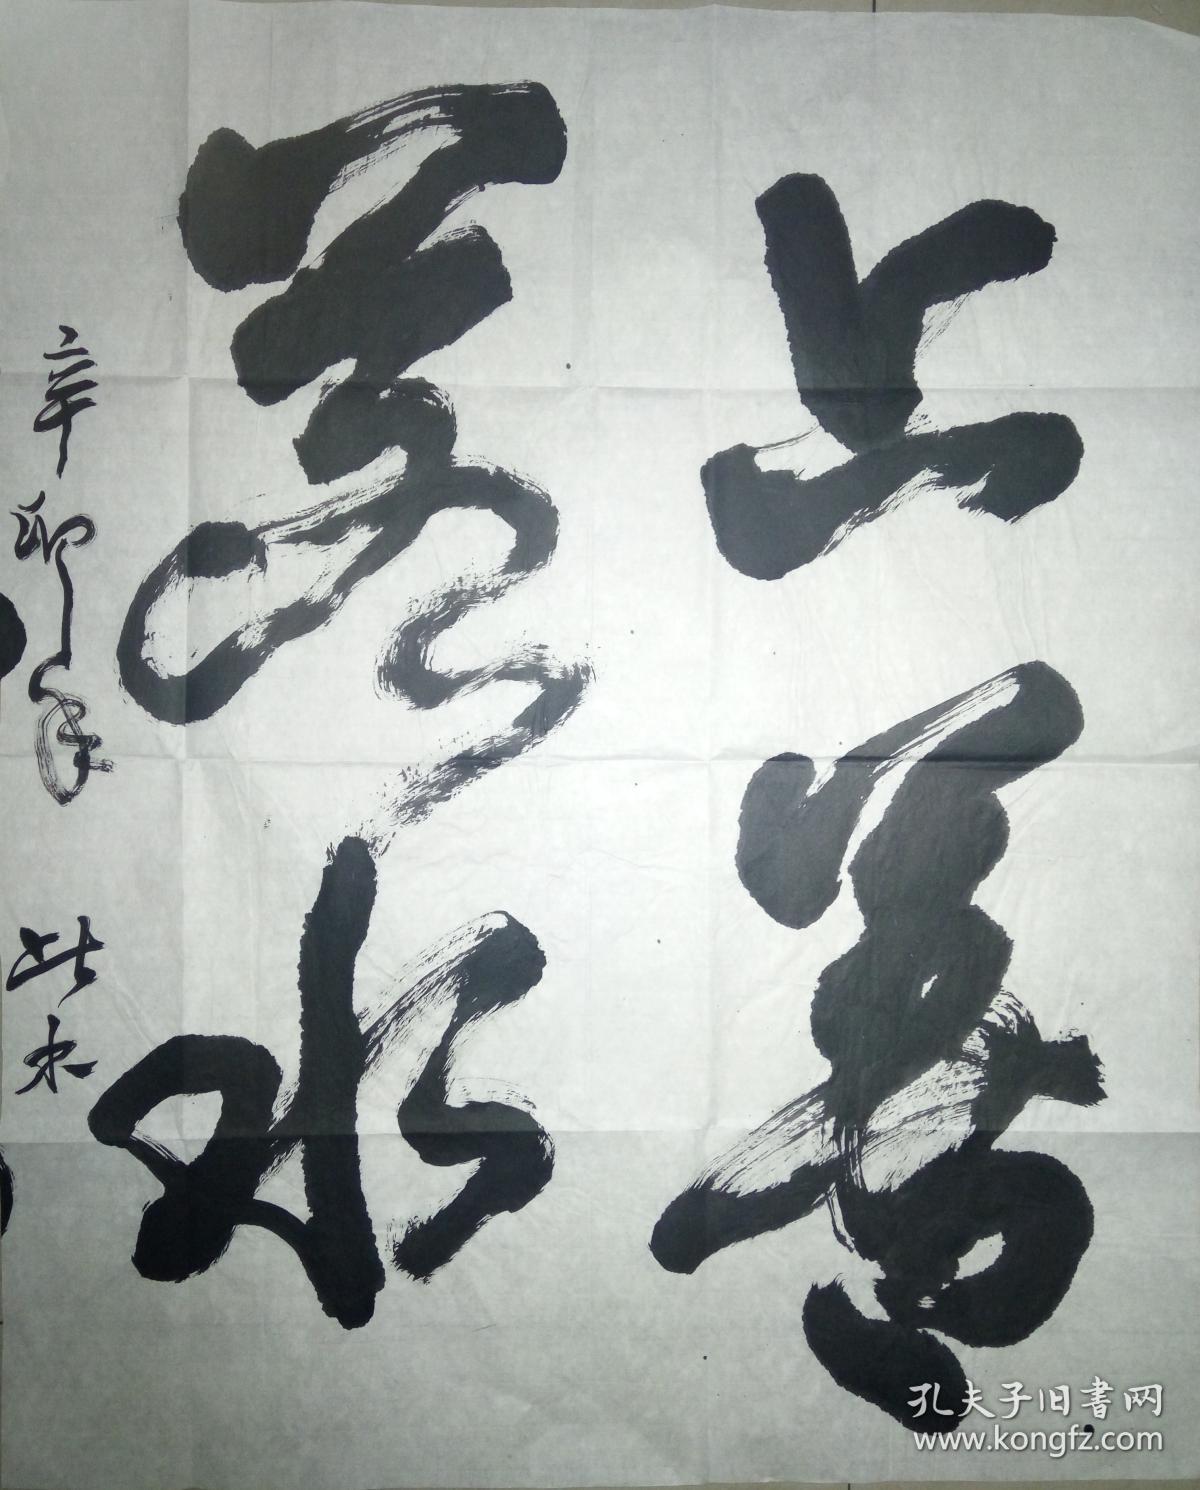 上善
若水
辛卯年 此木
孔夫子旧書网
www.kongfz.com